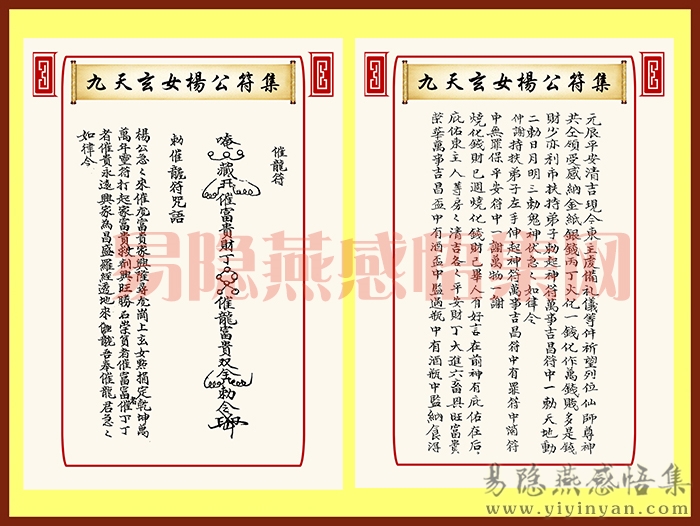 九天玄女楊公符集
催龍符
催富貴財丁催龍富貴双全勅令
勅催龍符咒語
楊公急々來催龍富貴家興隆尋龍崗上玄女點插定乾坤萬
萬年靈符打起家富貴興旺勝石崇貧者催富富催丁丁
者催貴永遠興家為昌盛羅經透地來催龍吾奉催龍君急々
如律令
九天玄女楊公符集
元辰平安清吉現今東主虔備礼儀等件祈望列位仙師尊神
共仝領受感納金紙銀錢丙丁火化一錢化作萬錢貺多是錢
財少亦利市扶持弟子勅起神符萬事吉昌符中一勅天地動
二勅日月明三勅鬼神伏急々如律令
仲謝持扶弟子左手伸起神符萬事吉昌符中有罪符中消符
中無罪保平安符中一謝萬物一謝
燒化錢財已週燒化錢財已畢人有好言在前神有庇佑在后.
庇佑東主人等房々清吉各々平安財丁大進六畜興旺富貴
榮華萬事吉昌盃中有酒盃中監過瓶中有酒瓶中監納食得
易隐燕感悟网
易隐燕感悟集
www.yiyinyan.com